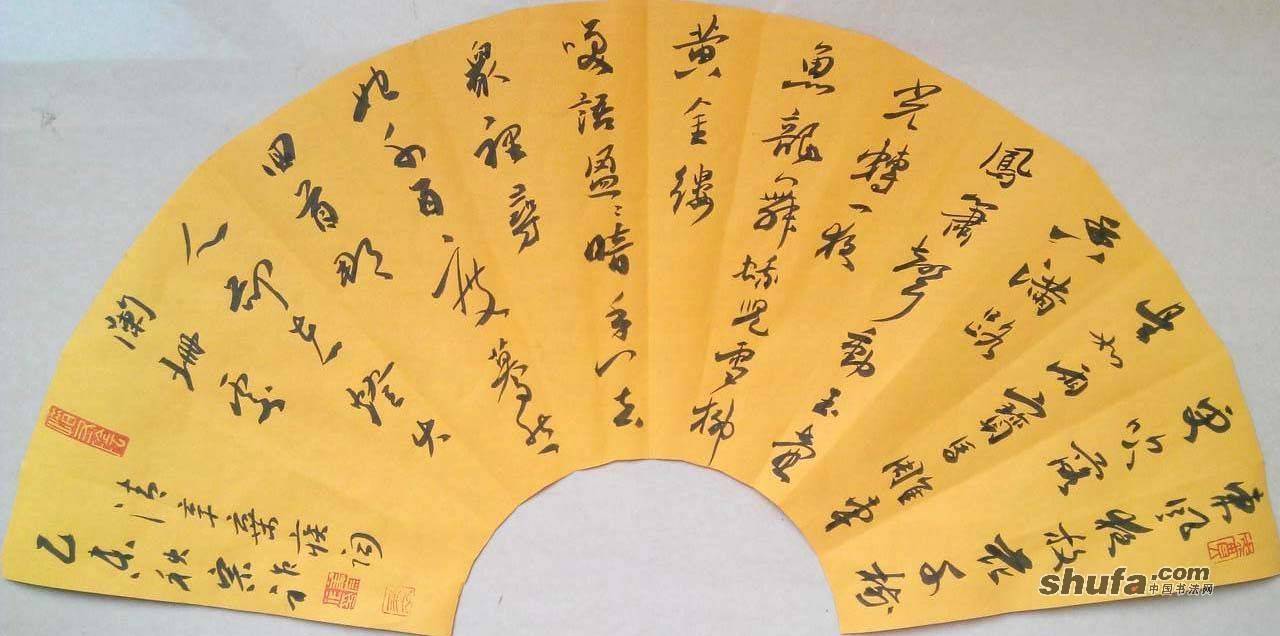 東風夜放花千樹
更吹落
星如雨寶馬雕車
香滿路
鳳簫聲動玉壺
光轉一夜
魚龍舞蛾兒雪柳
黄金縷
笑語盈〻暗香去
眾裡尋
他千百度驀然
回首那
人卻在燈火
闌珊處
辛棄疾词
乙未秋
shufa.com
中国书法网